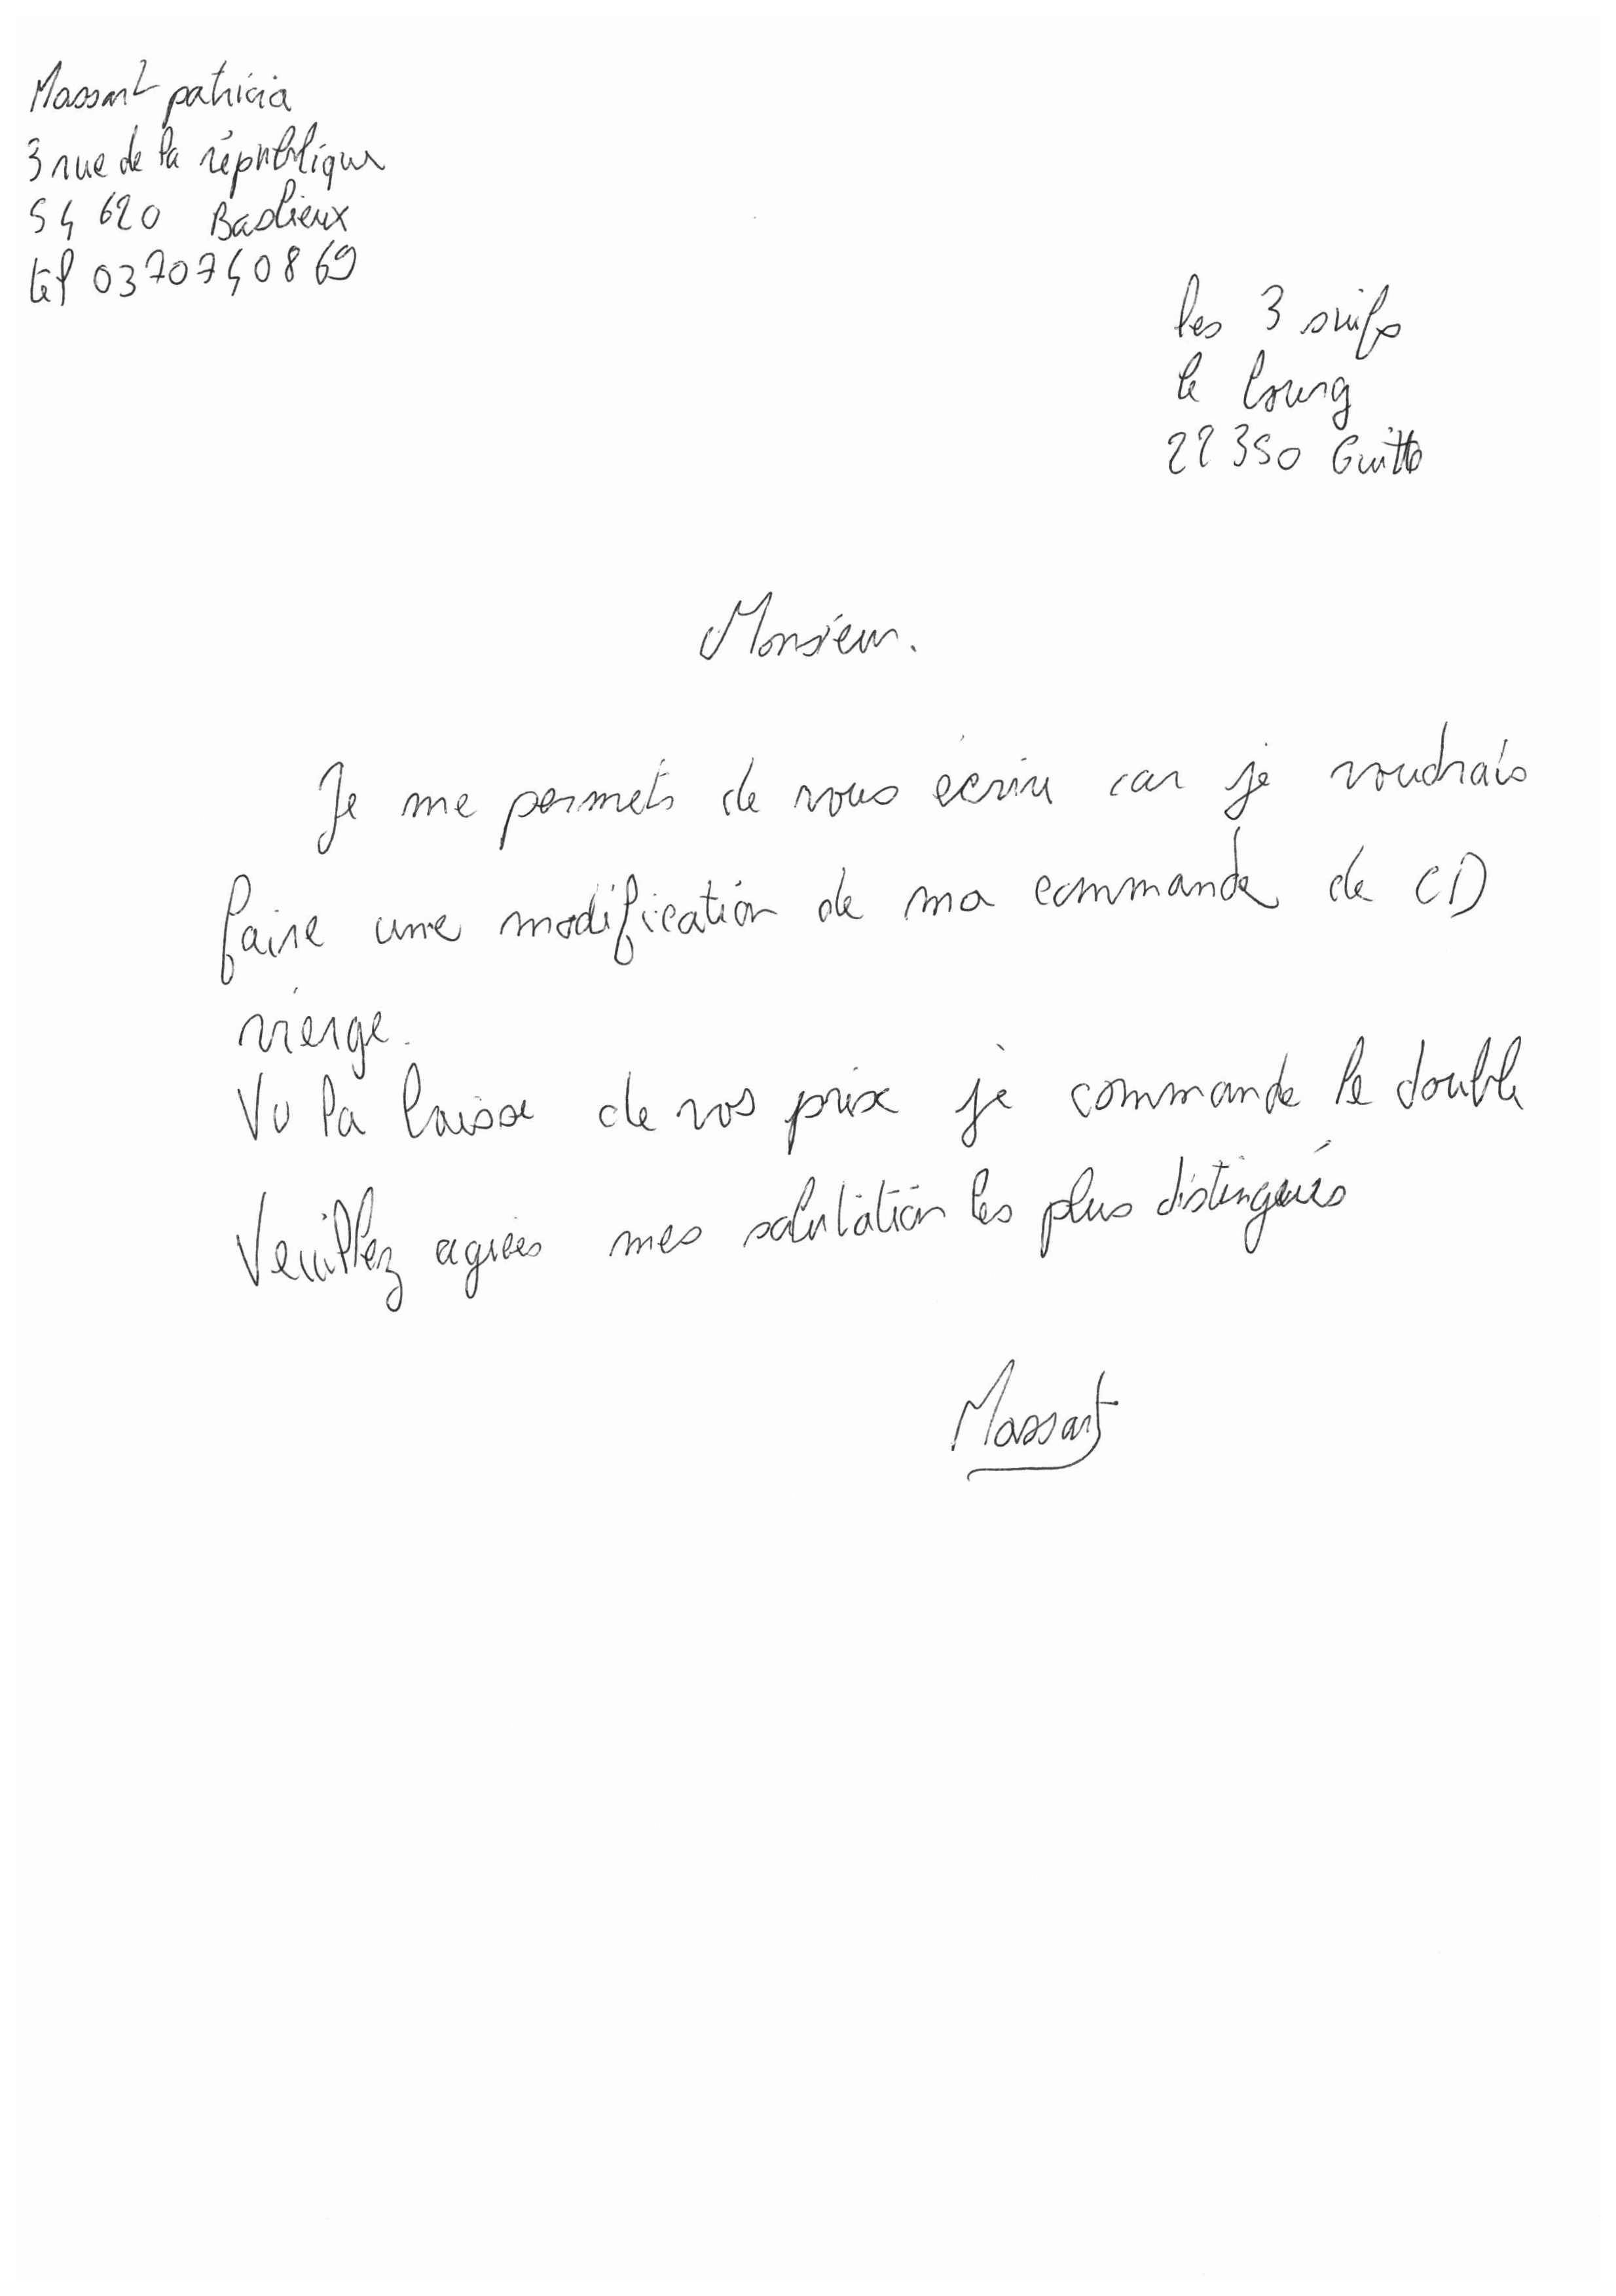 Massart patricia
3 rue de la république
54 620 Baslieux
tél 0370740869
les 3 suifs
le bourg
22350 Guitto
Monsieur.
Je me permets de vous écrire car je voudrais
faire une modification de ma commande de CD
vierge.
Vu la baisse de vos prix je commande le double
Veuillez agrées mes salutation les plus distingués
Massart